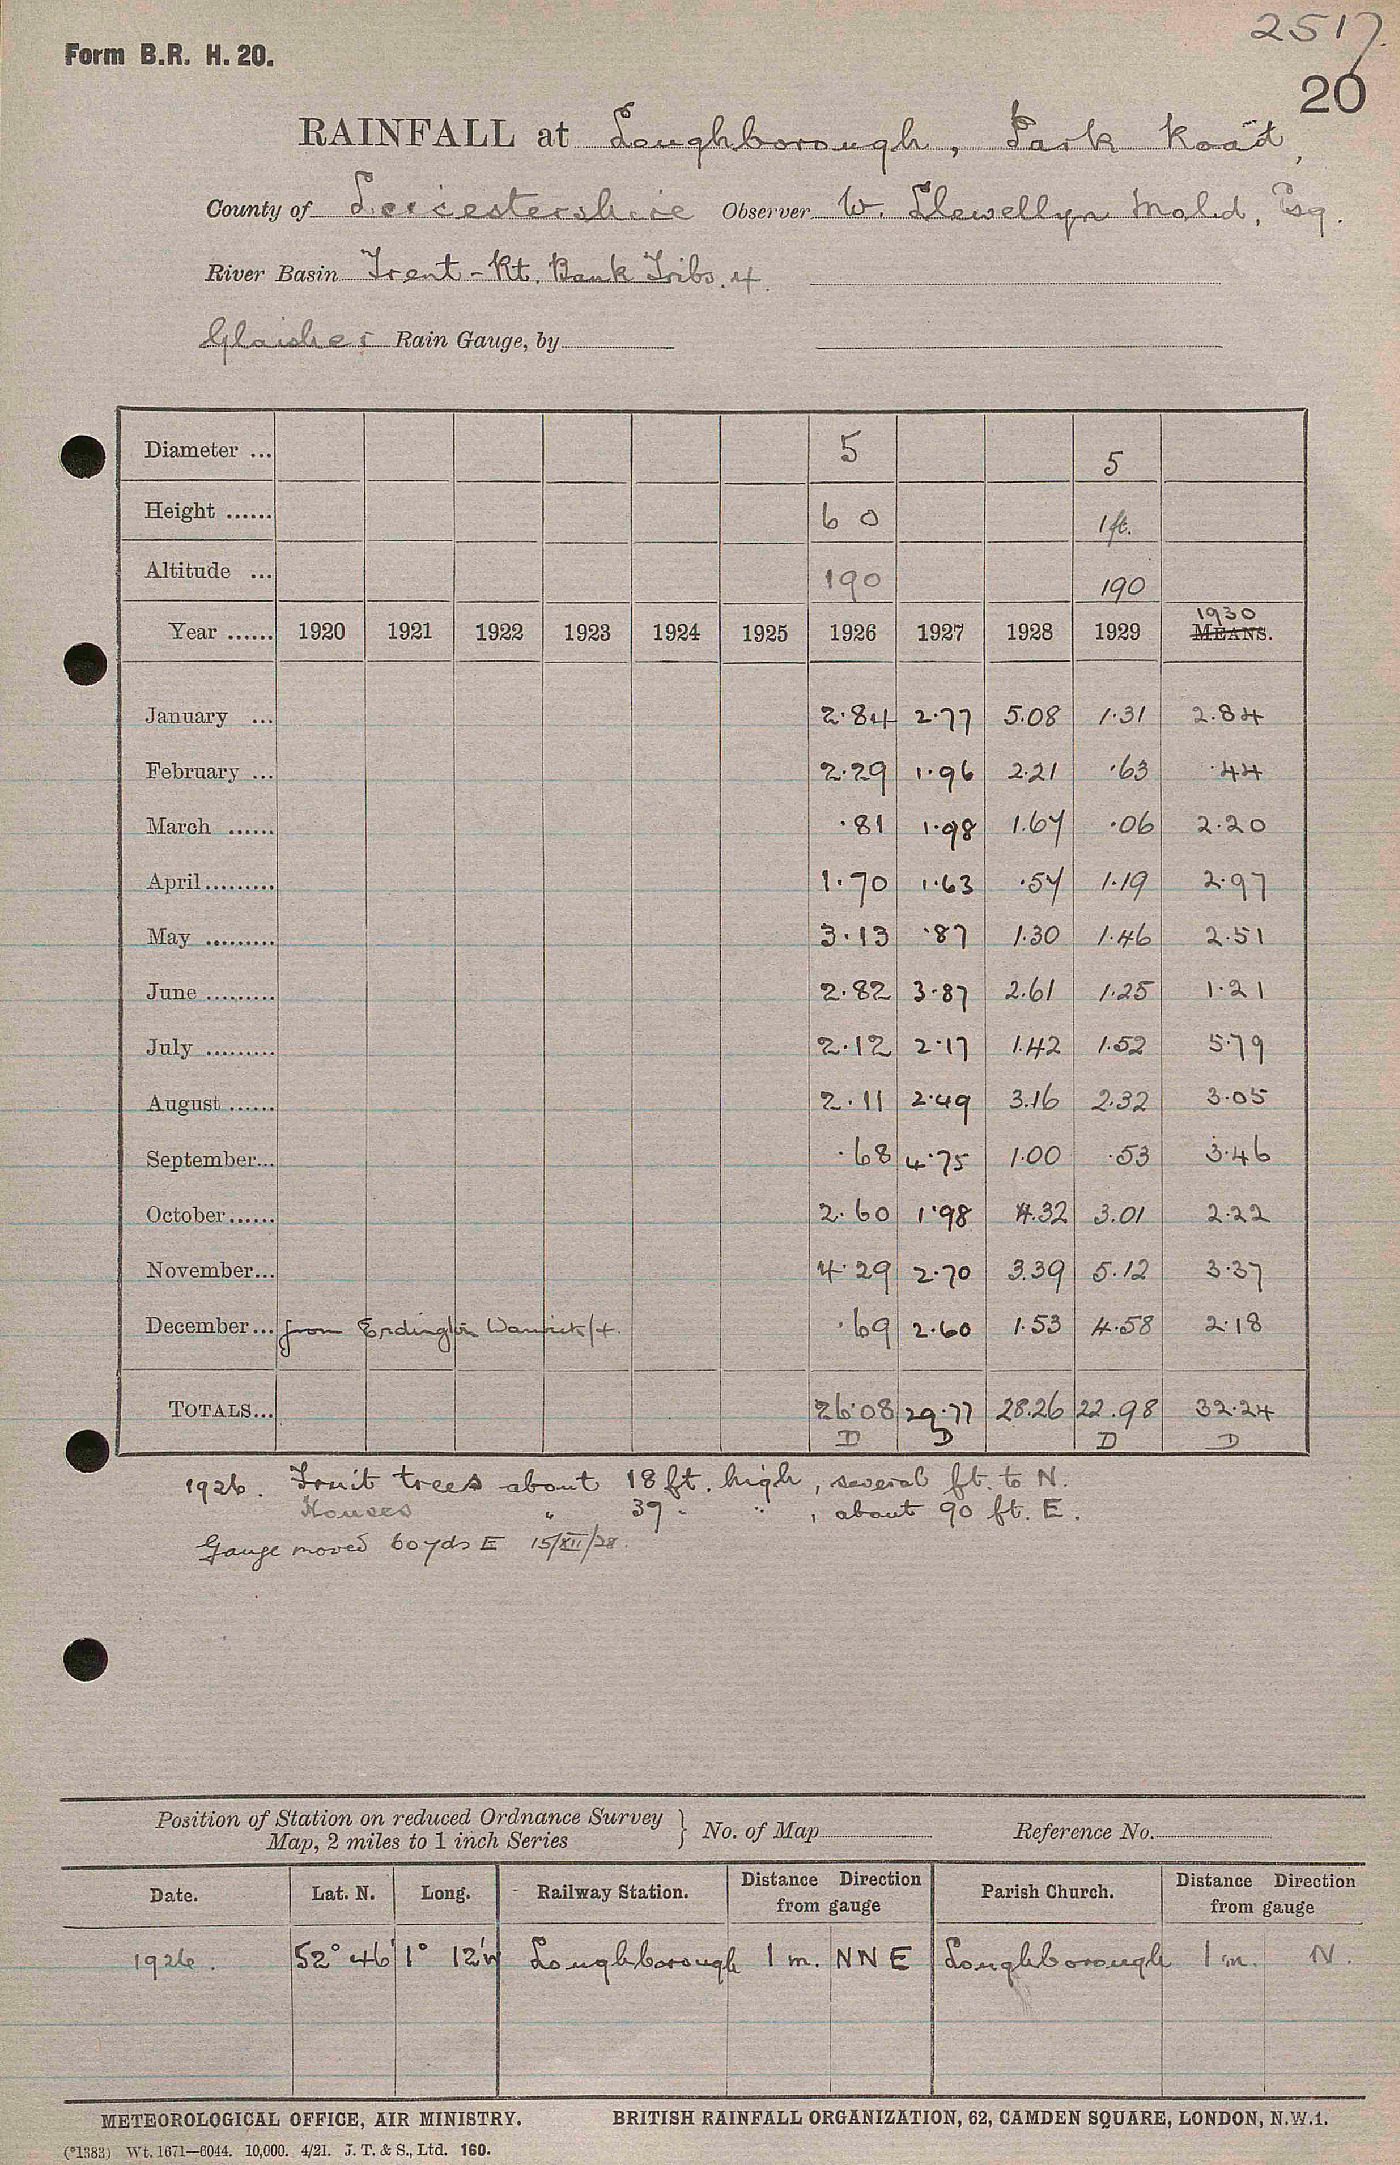 2517.
20
Form B.R. H. 20.
RAINFALL at Loughborough, Park Road,
County of Leicestershire Observer W. Llewellyn Mold, Esq.
River Basin Trent - Rt. Bank Tribs. 4.
Glaisher Rain Gauge, by
Diameter ... 5 5
Height ...... 6 0 1 ft.
Altitude ... 190 190
Year ...... 1920 1921 1922 1923 1924 1925 1926 1927 1928 1929 1930 MEANS.
January ... 2.84 2.77 5.08 1.31 2.84
February ... 2.29 1.96 2.21 .63 .44
March ...... .81 1.98 1.67 .06 2.20
April ......... 1.70 1.63 .57 1.19 2.97
May ......... 3.13 .87 1.30 1.46 2.51
June ......... 2.82 3.87 2.61 1.25 1.21
July ......... 2.12 2.17 1.42 1.52 5.79
August ...... 2.11 2.49 3.16 2.32 3.05
September... .68 4.75 1.00 .53 3.46
October...... 2.60 1.98 4.32 3.01 2.22
November... 4.29 2.70 3.39 5.12 3.37
December... from Erdington Warwick/4. .69 2.60 1.53 4.58 2.18
TOTALS... 26.08 29.77 28.26 22.98 32.24
D D D D
1926. Fruit trees about 18 ft. high, several ft. to N.
Houses " 39 " " , about 90 ft. E.
Gauge moved 60 yds E 15/XII/28.
Position of Station on reduced Ordnance Survey
Map, 2 miles to 1 inch Series } No. of Map Reference No.
Date. Lat. N. Long. Railway Station. Distance Direction from gauge Parish Church. Distance Direction from gauge
1926. 52° 46' 1° 12'W Loughborough 1 m. NNE Loughborough 1 m. N.
METEOROLOGICAL OFFICE, AIR MINISTRY. BRITISH RAINFALL ORGANIZATION, 62, CAMDEN SQUARE, LONDON, N.W.1.
(*1383) Wt. 1671—6044. 10,000. 4/21. J. T. & S., Ltd. 160.